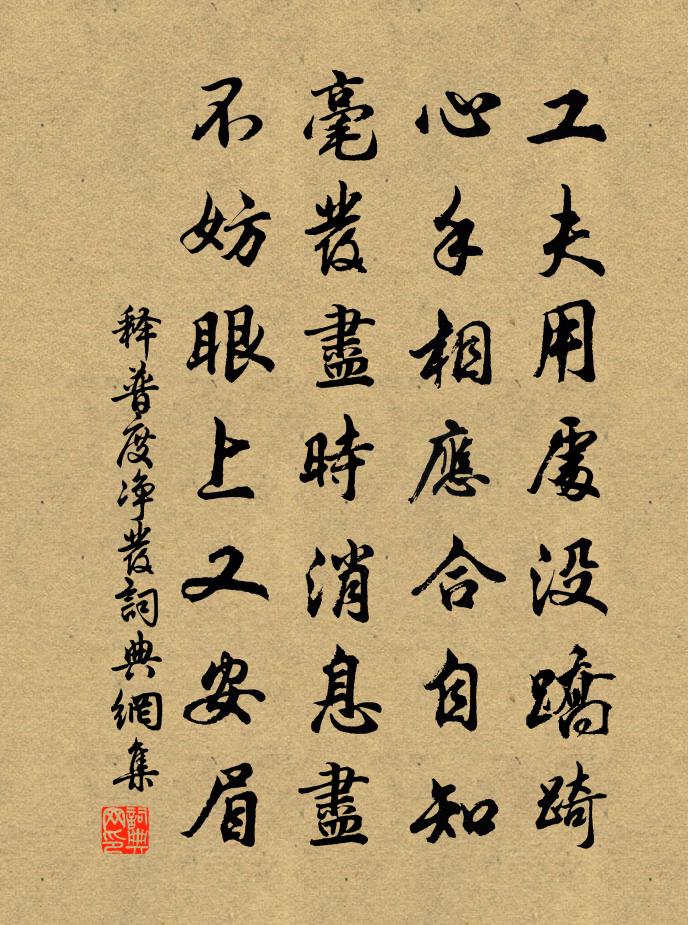 工夫用處没蹺踦
心手相應合自知
毫發盡時消息盡
不妨眼上又安眉
释普度净發詞典網集
詞典网印